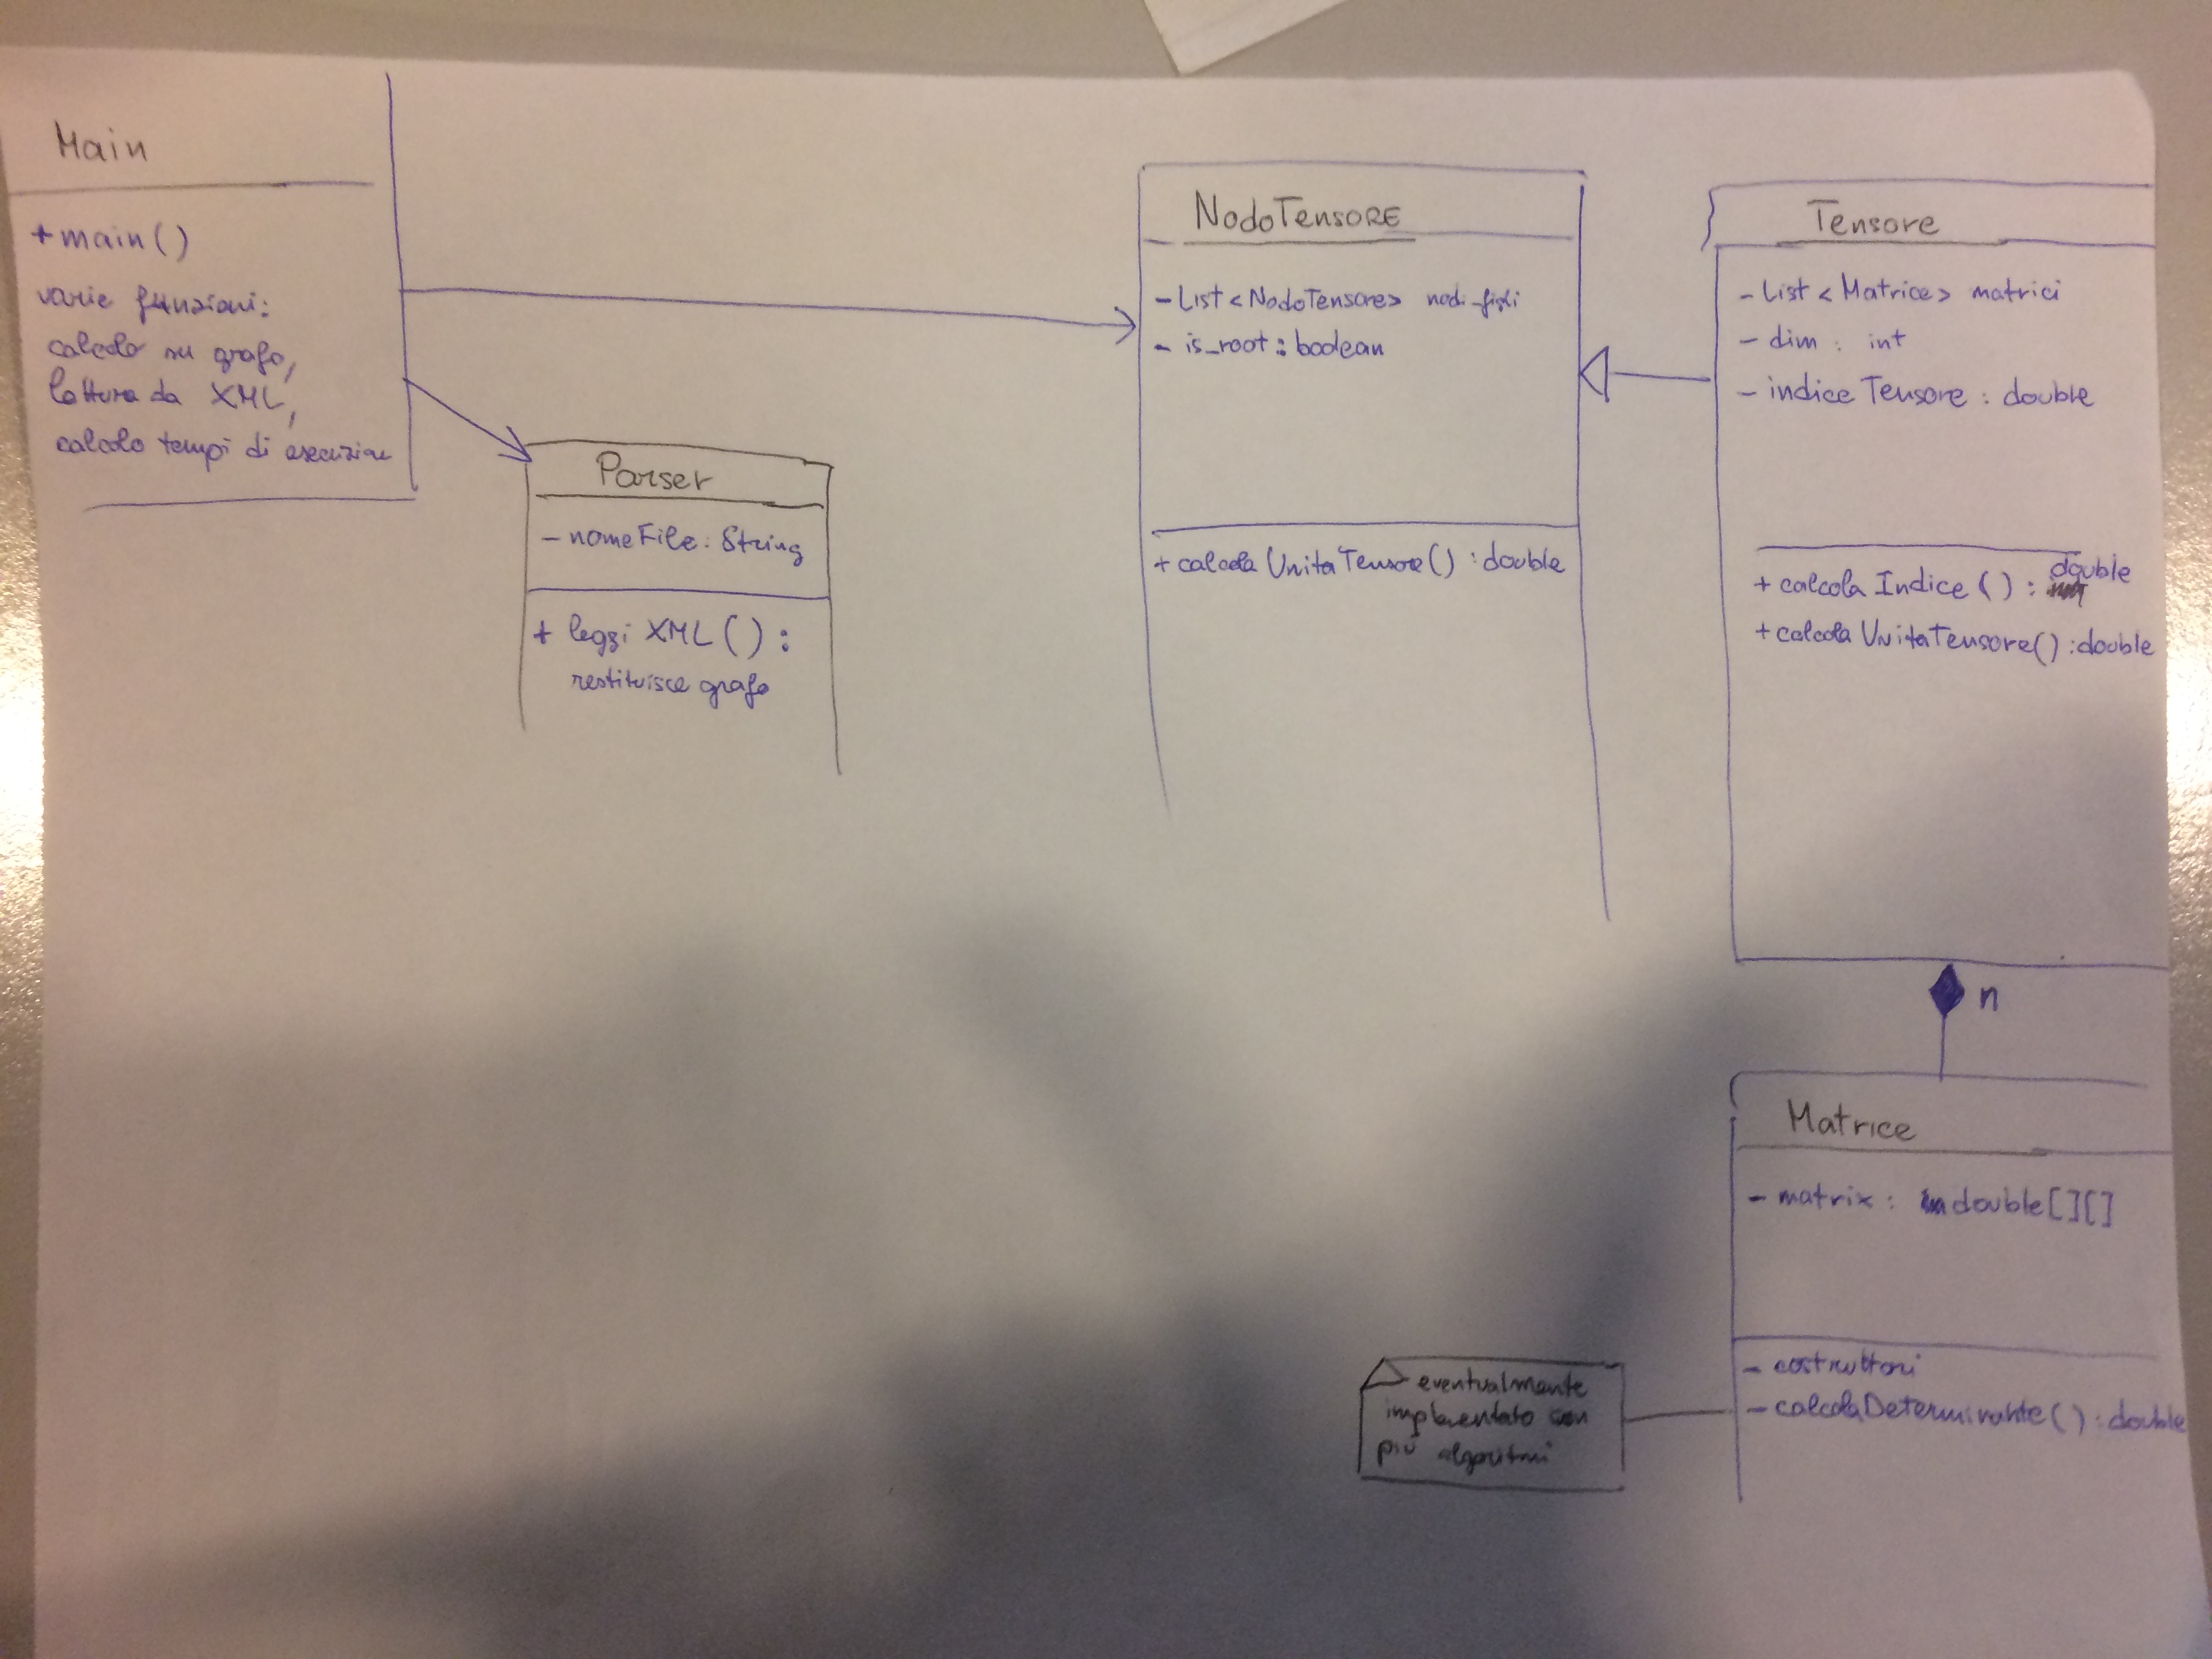 Main
+ main()
varie funzioni:
calcolo su grafo,
lettura da XML,
calcolo tempi di esecuzione
Parser
- nomeFile: String
+ leggi XML():
restituisce grafo
NodoTensore
- List<NodoTensore> nodi_figli
- is_root: boolean
+ calcola Unita Tensore() : double
Tensore
- List<Matrice> matrici
- dim : int
- indice Tensore : double
+ calcola Indice() : double
+ calcola UnitaTensore() : double
n
Matrice
- matrix : double[][]
- costruttori
- calcolaDeterminante() : double
eventualmente
implementato con
più algoritmi